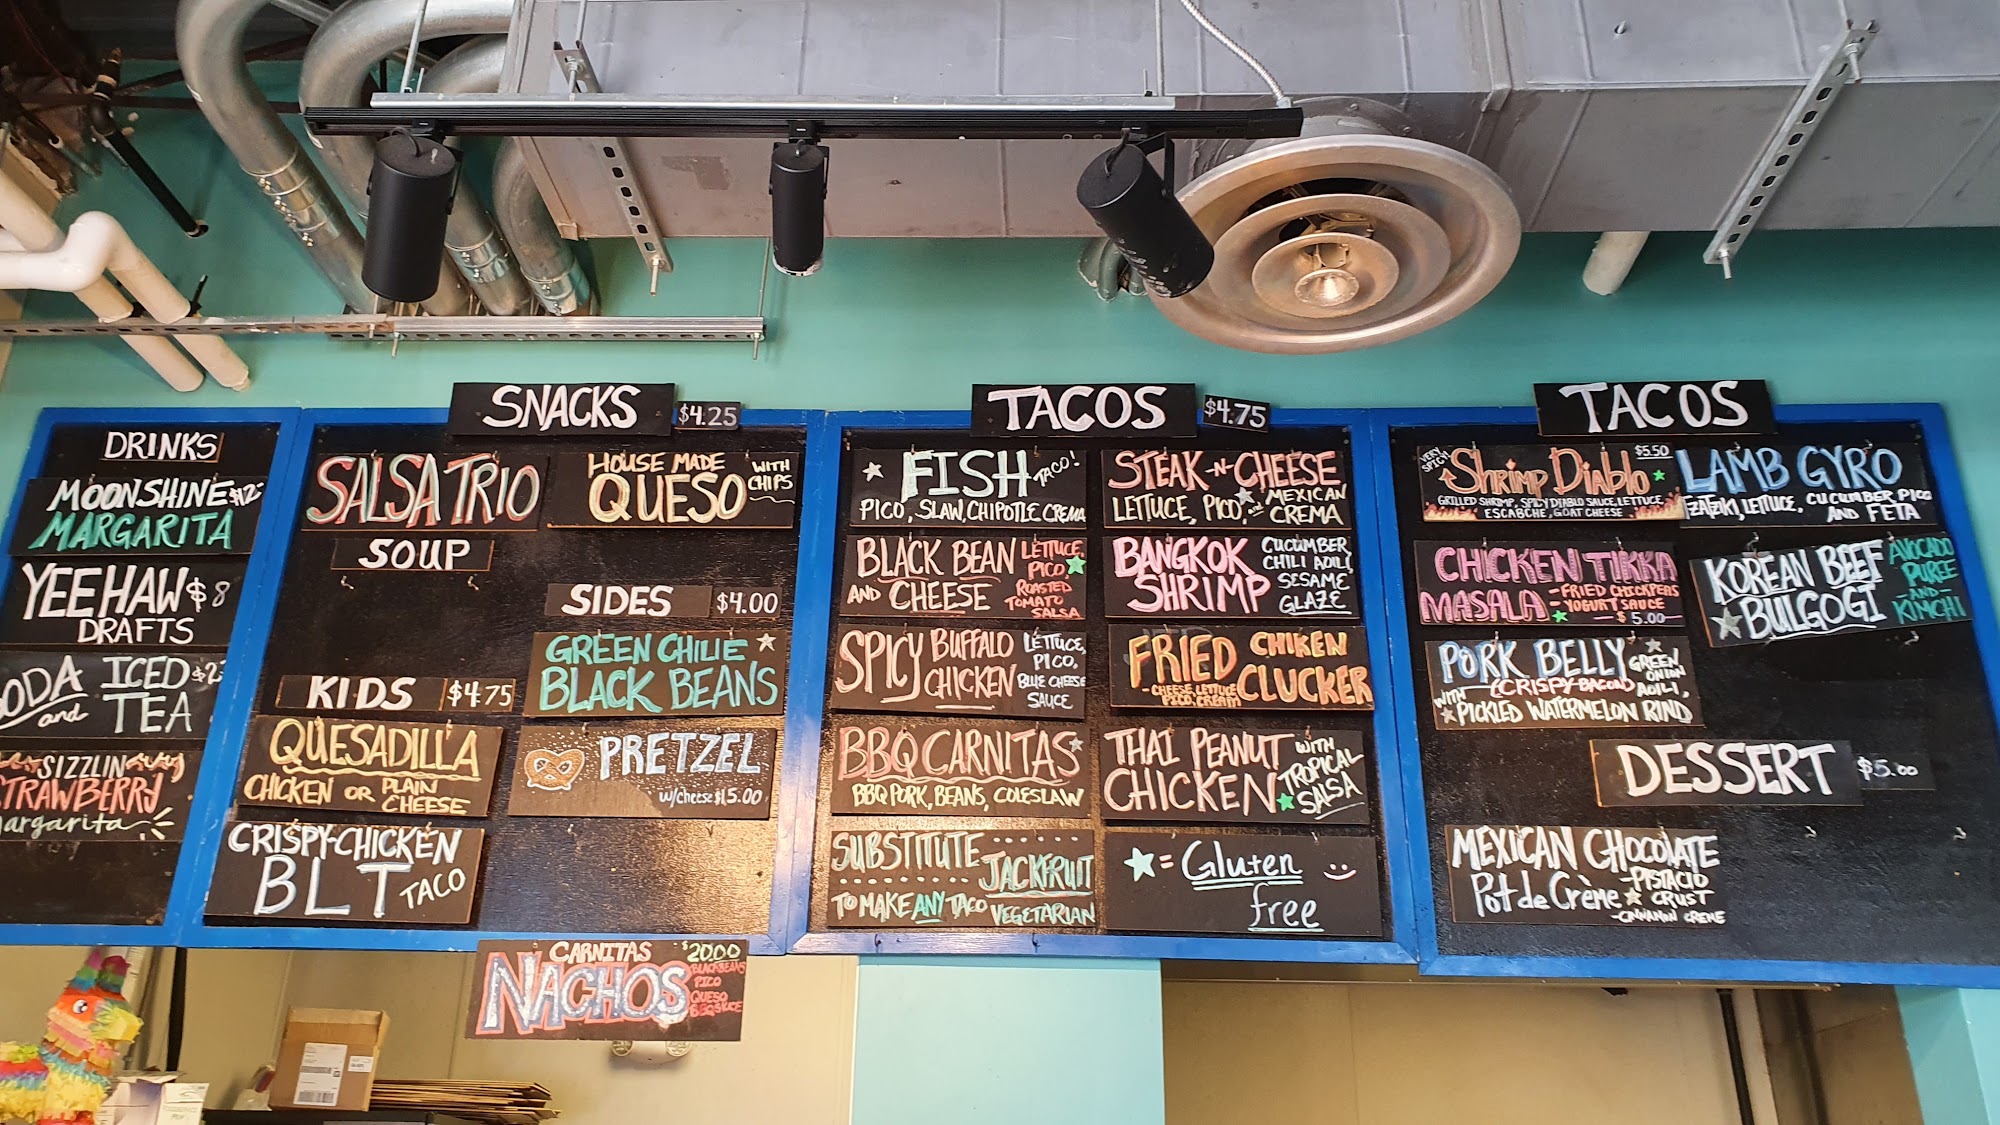 DRINKS
MOONSHINE $12
MARGARITA
YEEHAW $8
DRAFTS
SODA ICED
and TEA
SIZZLIN
STRAWBERRY
Margarita
SNACKS $4.25
SALSA TRIO
HOUSE MADE
QUESO
WITH
CHIPS
SOUP
SIDES $4.00
GREEN CHILIE
BLACK BEANS
KIDS $4.75
QUESADILLA
CHICKEN OR PLAIN
CHEESE
PRETZEL
w/cheese $15.00
CRISPY-CHICKEN
BLT TACO
CARNITAS $20.00
NACHOS
BLACK BEANS
PICO
QUESO
BBQ SAUCE
TACOS $4.75
FISH TACO!
PICO, SLAW, CHIPOTLE CREMA
STEAK-N-CHEESE
LETTUCE, PICO, AND MEXICAN
CREMA
BLACK BEAN
AND CHEESE
LETTUCE
PICO,
ROASTED
TOMATO
SALSA
BANGKOK
SHRIMP
CUCUMBER,
CHILI AOILI,
SESAME
GLAZE
SPICY BUFFALO
CHICKEN
LETTUCE,
PICO,
BLUE CHEESE
SAUCE
FRIED CHIKEN
CLUCKER
-CHEESE, LETTUCE
PICO, CREAM
BBQ CARNITAS
BBQ PORK, BEANS, COLESLAW
THAI PEANUT
CHICKEN
WITH
TROPICAL
SALSA
SUBSTITUTE
JACKFRUIT
TO MAKE ANY TACO VEGETARIAN
= Gluten
free
TACOS
VERY
SPICY!
Shrimp Diablo $5.50
GRILLED SHRIMP, SPICY DIABLO SAUCE, LETTUCE,
ESCABCHE, GOAT CHEESE
LAMB GYRO
TZATZIKI, LETTUCE, CUCUMBER, PICO
AND FETA
CHICKEN TIKKA
MASALA
-FRIED CHICKPEAS
-YOGURT SAUCE
-$5.00
KOREAN BEEF
BULGOGI
AVOCADO
PUREE
-AND-
KIMCHI
PORK BELLY
(CRISPY-BACON)
GREEN
ONION
AOILI,
WITH
PICKLED WATERMELON RIND
DESSERT $5.00
MEXICAN CHOCOLATE
Pot de Crème
-PISTACIO
CRUST
-CINNAMON CREME